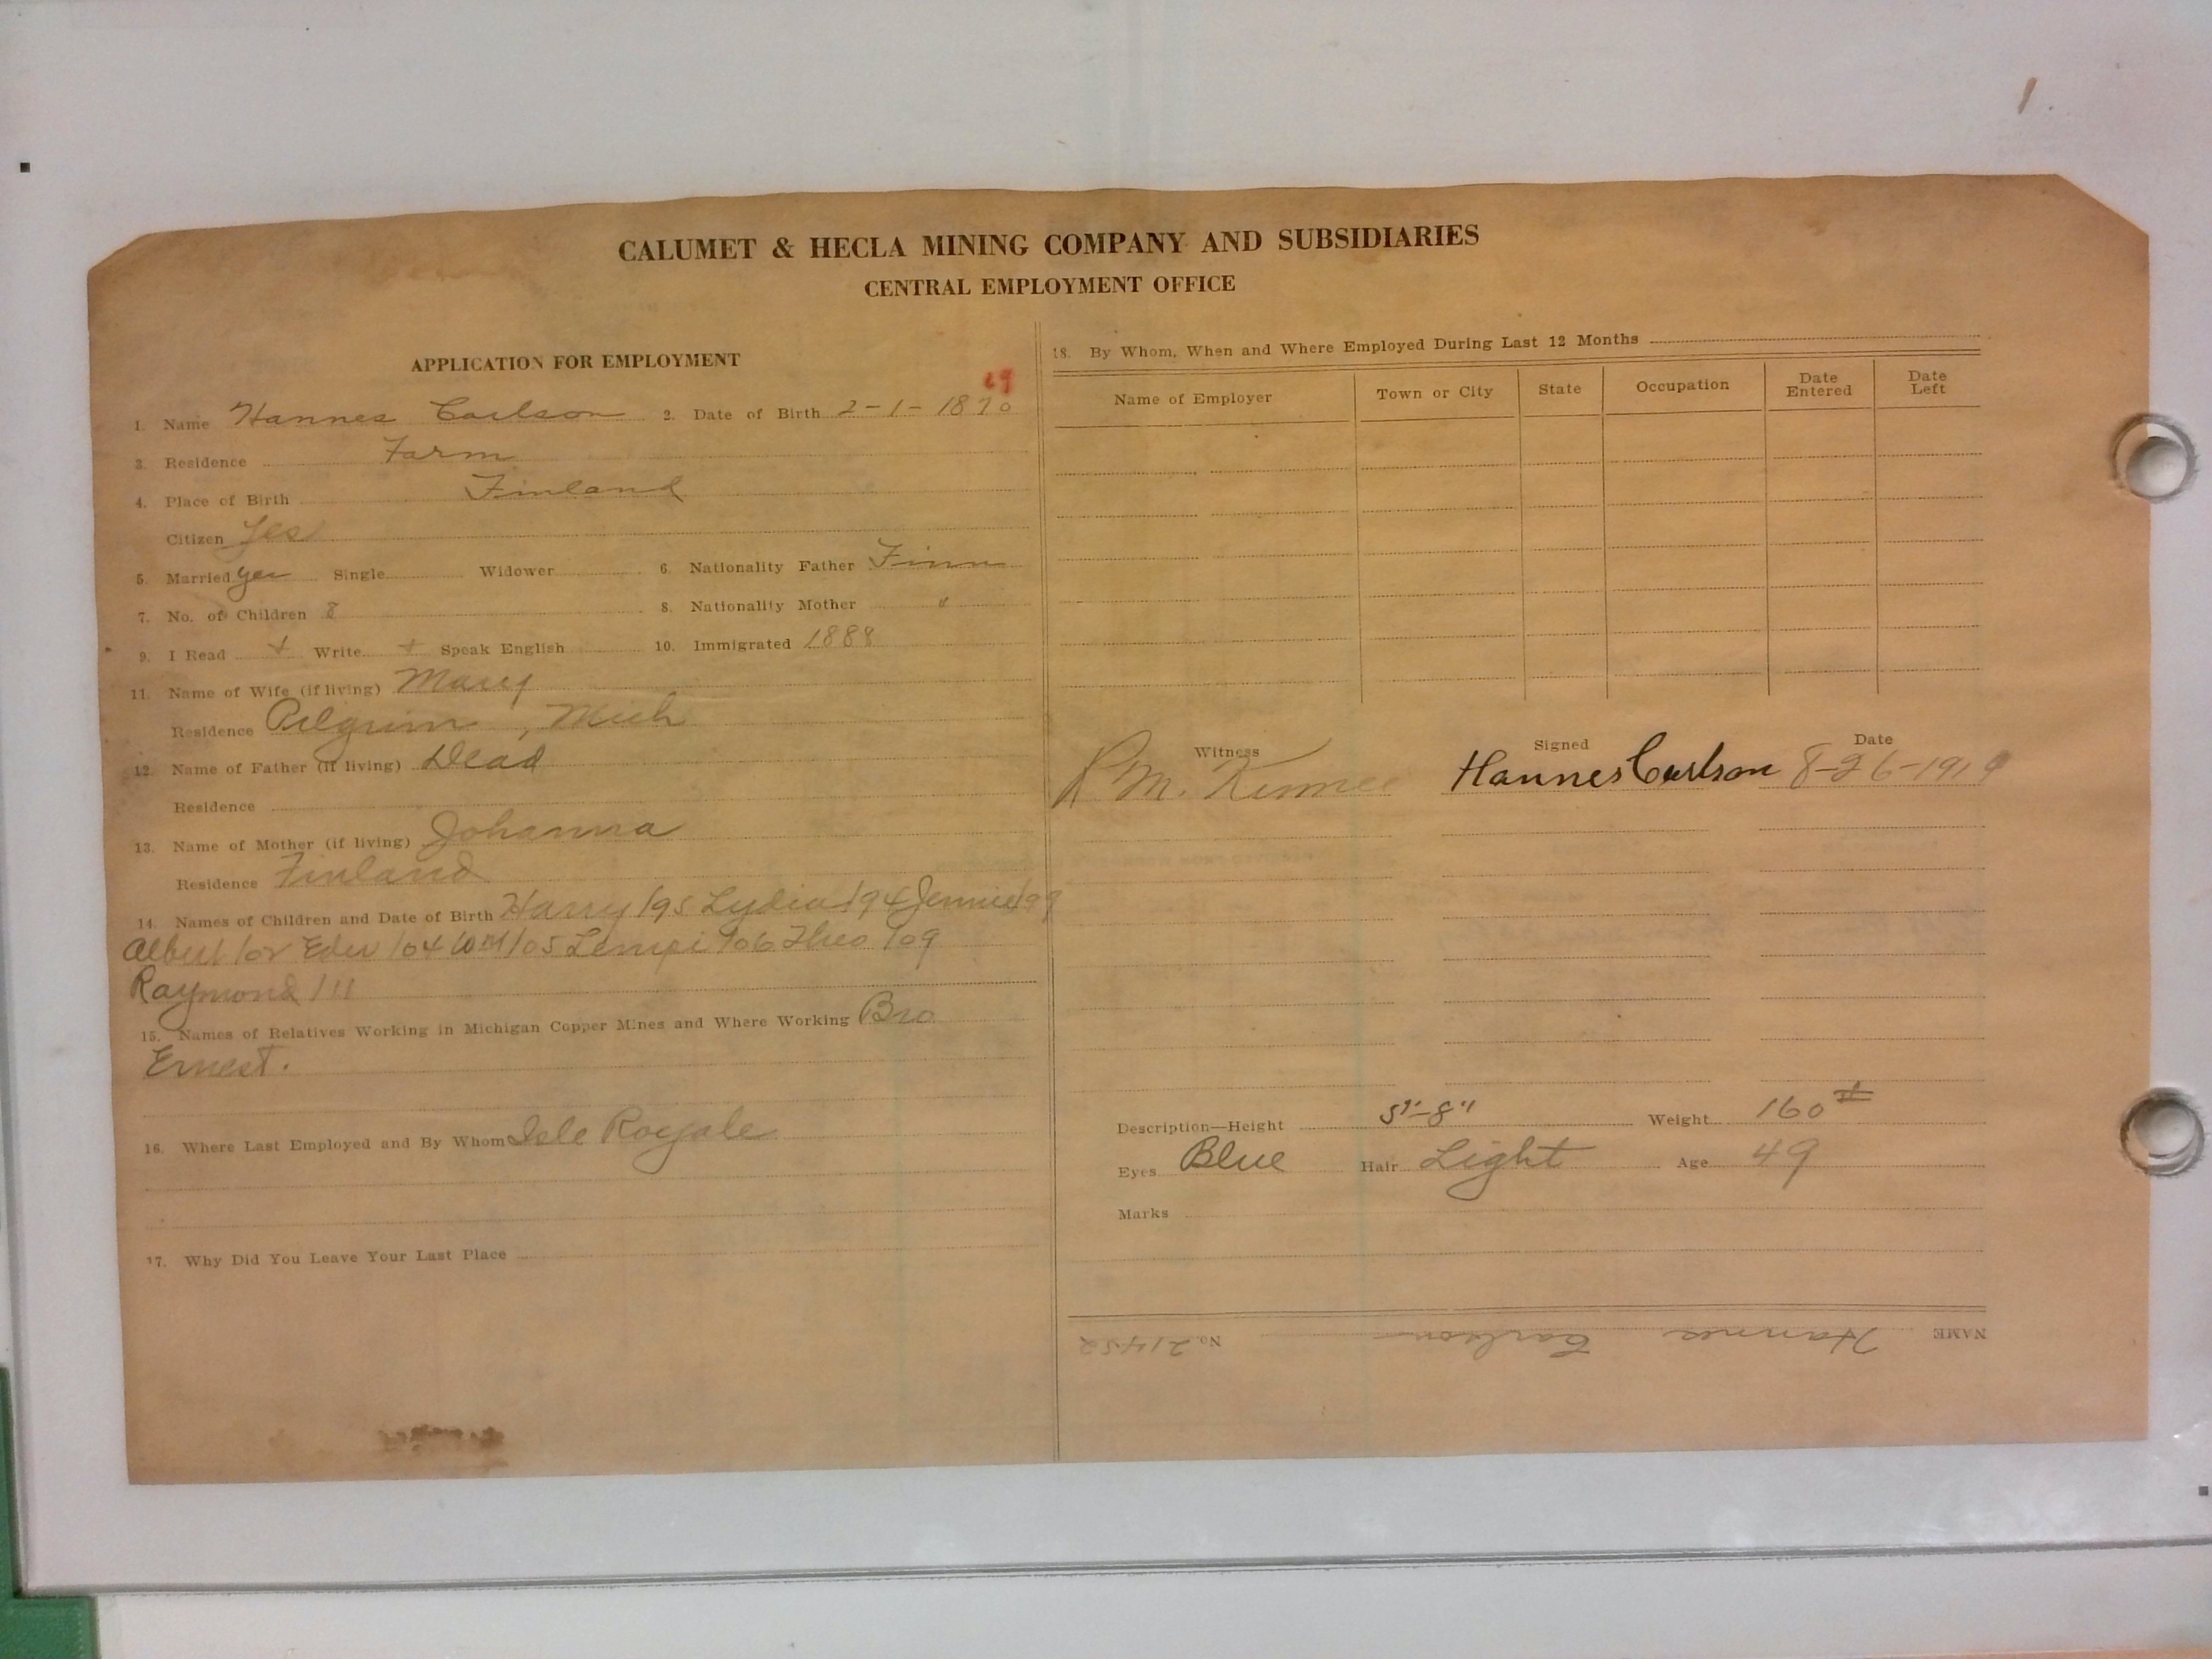 1.
CALUMET & HECLA MINING COMPANY AND SUBSIDIARIES
CENTRAL EMPLOYMENT OFFICE
APPLICATION FOR EMPLOYMENT
69
1. Name Hannes Carlson 2. Date of Birth 2-1-1870
3. Residence Farm
4. Place of Birth Finland
Citizen Yes
5. Married yes Single Widower 6. Nationality Father Finn
7. No. of Children 8 8. Nationality Mother "
9. I Read + Write + Speak English 10. Immigrated 1888
11. Name of Wife (if living) Mary
Residence Pilgrim, Mich
12. Name of Father (if living) Dead
Residence
13. Name of Mother (if living) Johanna
Residence Finland
14. Names of Children and Date of Birth Harry /95 Lydia /94 Jennie /99
Albert /02 /04 Wm /05 Lempi /06 Theo /09
Raymond /11
15. Names of Relatives Working in Michigan Copper Mines and Where Working Bro
Ernest.
16. Where Last Employed and By Whom Isle Royale
17. Why Did You Leave Your Last Place
18. By Whom, When and Where Employed During Last 12 Months
Name of Employer Town or City State Occupation Date Entered Date Left
Witness Signed Date
R M. Hannes Carlson 8-26-1919
Description—Height 5'-8" Weight 160#
Eyes Blue Hair Light Age 49
Marks
NAME Hannes Carlson No. 21452